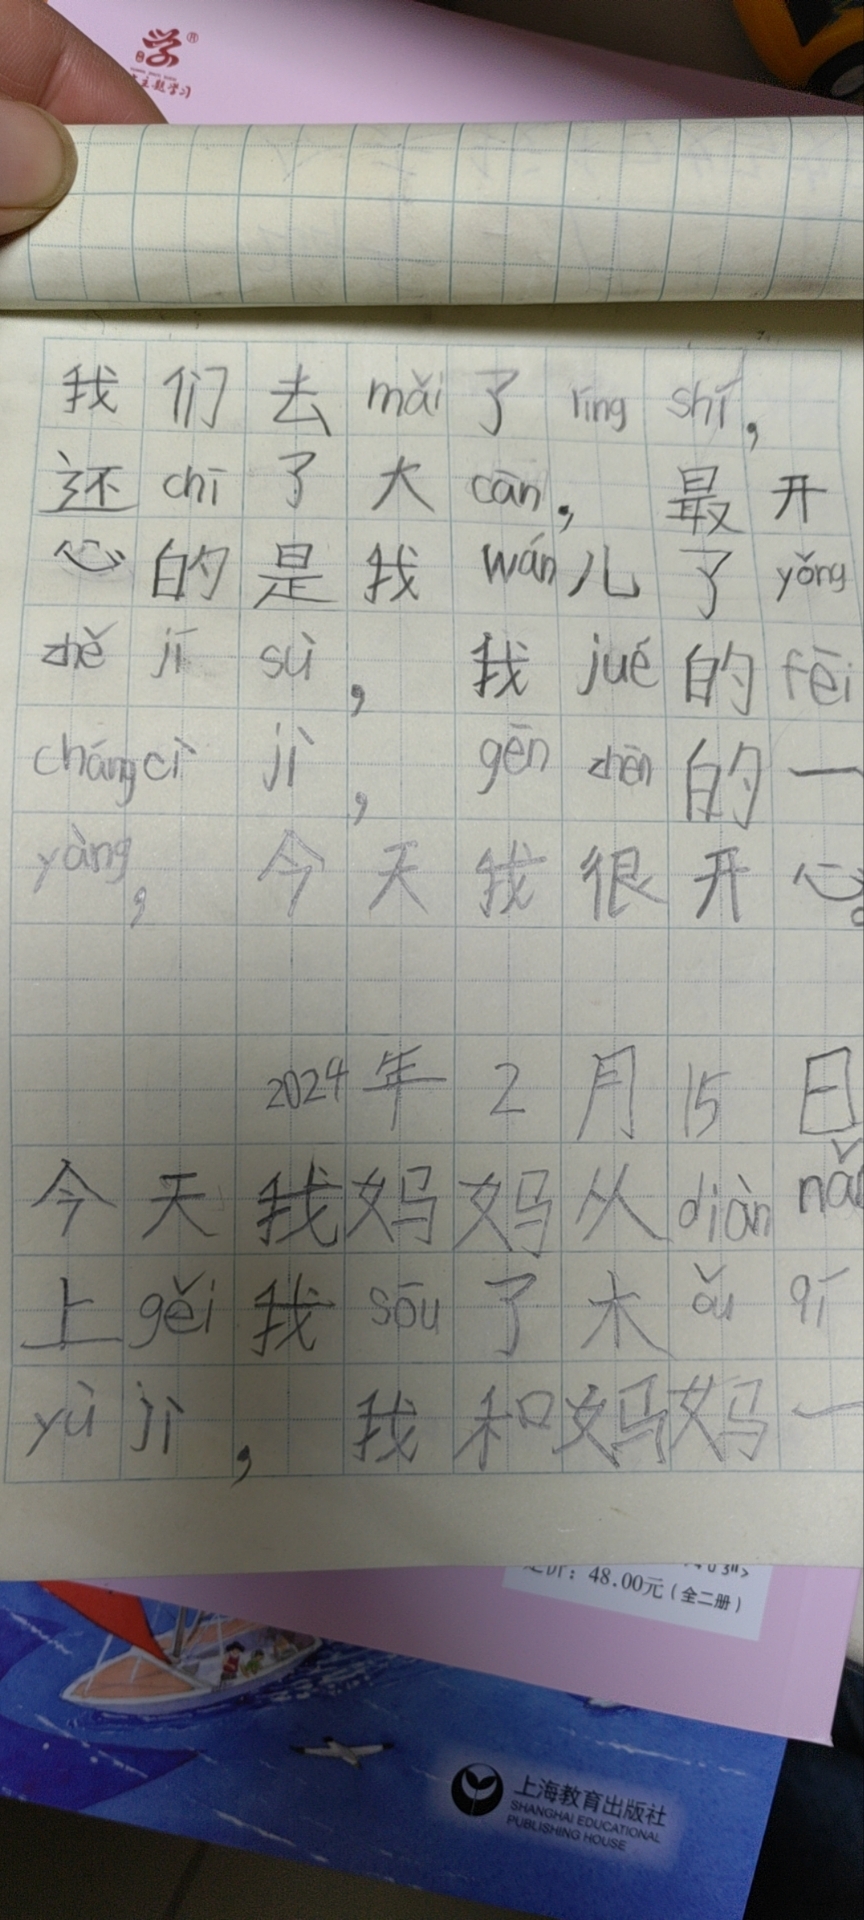 学®
主题学习
我们去mǎi了líng shí，
还chī了大cān，最开
心的是我wán儿了yǒng
zhě jí sù，我jué的fēi
cháng cì jì，gēn zhēn的一
yàng，今天我很开心。
2024年2月15日
今天我妈妈从diàn nǎo
上gěi我sōu了木ǒu qí
yù jì，我和妈妈一
定价：48.00元（全二册）
上海教育出版社
SHANGHAI EDUCATIONAL
PUBLISHING HOUSE